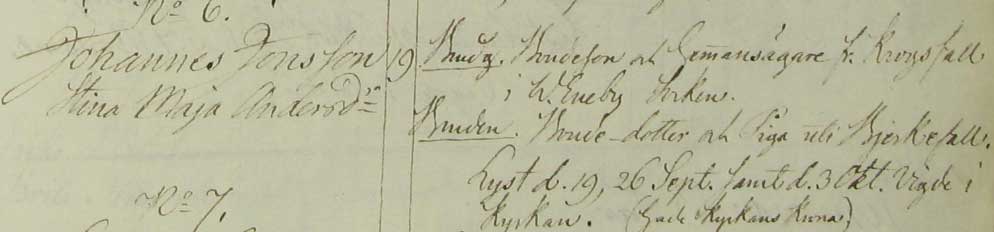 No 6.
Johannes Jonsson 19
Stina Maja Andersdr
Brudg. Bondeson och Hemansägare fr. Krogsfall
i W. Eneby Socken.
Bruden. Bonde-dotter och Piga uti Bjerkefall.
Lyst d. 19, 26 Sept. samt d. 3 Okt. Vigde i
Kyrkan. (hade Kyrkans Krona)
No 7.